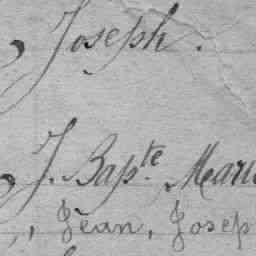 , Joseph.
, J. Bapte. Marie
, Jean, Josep